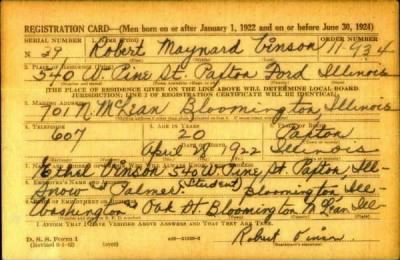 REGISTRATION CARD—(Men born on or after January 1, 1922 and on or before June 30, 1924)
SERIAL NUMBER 1. NAME (Print) ORDER NUMBER
N 39 Robert Maynard Vinson 11-934
2. PLACE OF RESIDENCE (Print)
540 W. Pine St. Paxton Ford Illinois
[THE PLACE OF RESIDENCE GIVEN ON THE LINE ABOVE WILL DETERMINE LOCAL BOARD
JURISDICTION; LINE 2 OF REGISTRATION CERTIFICATE WILL BE IDENTICAL]
3. MAILING ADDRESS
701 N. McLean Bloomington, Illinois
4. TELEPHONE 5. AGE IN YEARS 6. PLACE OF BIRTH
607 20 Paxton
April 28 1922 Illinois
Ethel Vinson 540 W. Pine St. Paxton, Ill-
8. EMPLOYER'S NAME AND
Snow & Palmer (Student) Bloomington Ill
Washington & Oak St. Bloomington McLean Ill
I AFFIRM THAT I HAVE VERIFIED ABOVE ANSWERS AND THAT THEY ARE TRUE.
D. S. S. Form 1
Robert Vinson